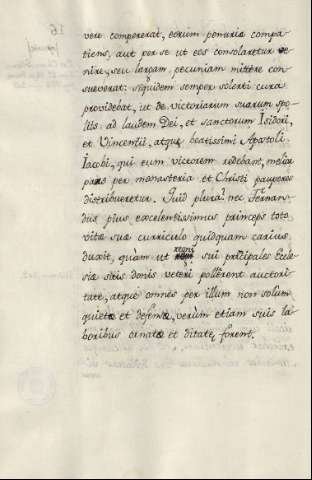 vere compererat, eorum penuriæ compa-
tiens, aut per se ut eos consolaretur ve-
nire, seu largam, pecuniam mittere con-
sueverat: siquidem semper solerti cura
providebat, ut de victoriarum suarum spo-
liis ad laudem Dei, et sanctorum Isidori,
et Vincentii, atque beatissimi Apostoli
Iacobi, qui eum victorem redebant, melior
pars per monasteria et Christi pauperes
distribueretur. Quid plura? nec Fernan-
dus pius excelentissimus princeps toto
vitæ suæ curriculo quidquam carius
duxit, quàm ut regni sui principales Eccle-
siæ sitis donis veteri pollerent auctori-
tate, atque omnes per illum non solum
quietæ et defensæ, verum etiam suis la-
boribus ornatæ et ditatæ forent.